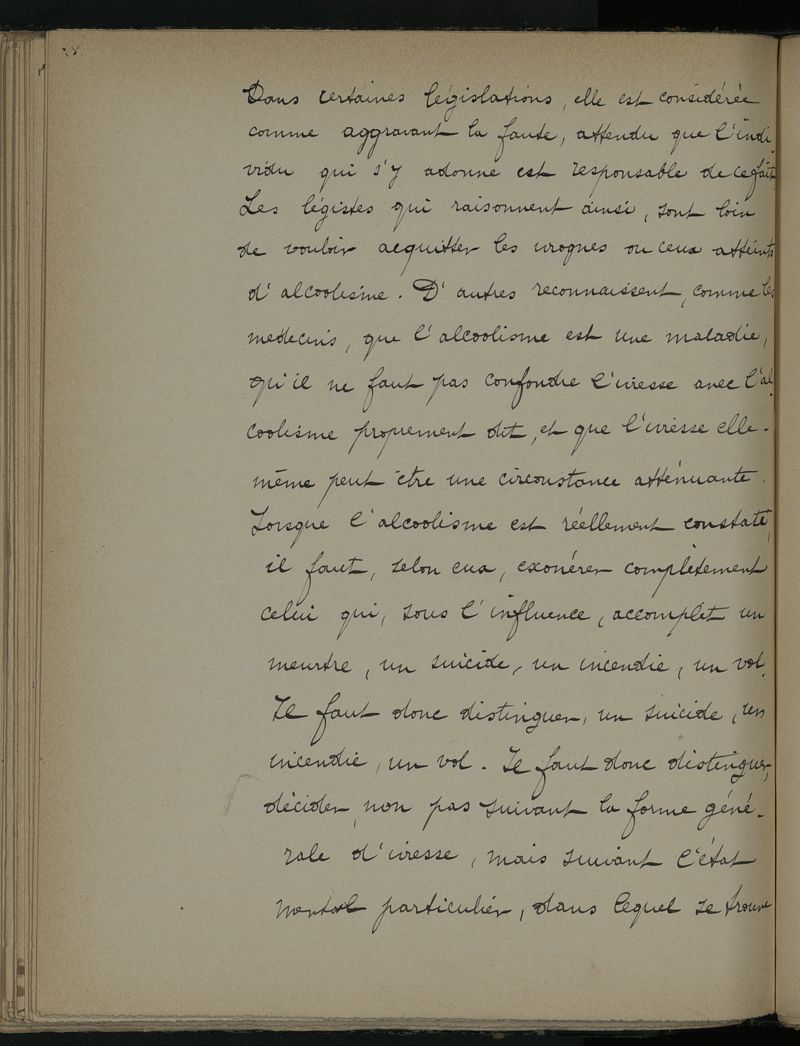 Dans certaines législations, elle est considérée
comme aggravant la faute, attendu que l'indi-
vidu qui s'y adonne est responsable de ce fait.
Les légistes qui raisonnent ainsi, sont loin
de vouloir acquitter les ivrognes ou ceux atteints
d'alcoolisme. D'autres reconnaissent, comme les
médecins, que l'alcoolisme est une maladie,
qu'il ne faut pas confondre l'ivresse avec l'al-
coolisme proprement dit, et que l'ivresse elle-
même peut être une circonstance atténuante.
Lorsque l'alcoolisme est réellement constaté,
il faut, selon eux, exonérer complètement
celui qui, sous l'influence, accomplit un
meurtre, un suicide, un incendie, un vol.
Il faut donc distinguer, un suicide, un
incendie, un vol. Il faut donc distinguer,
décider, non pas suivant la forme géné-
rale d'ivresse, mais suivant l'état
mental particulier, dans lequel se trouve